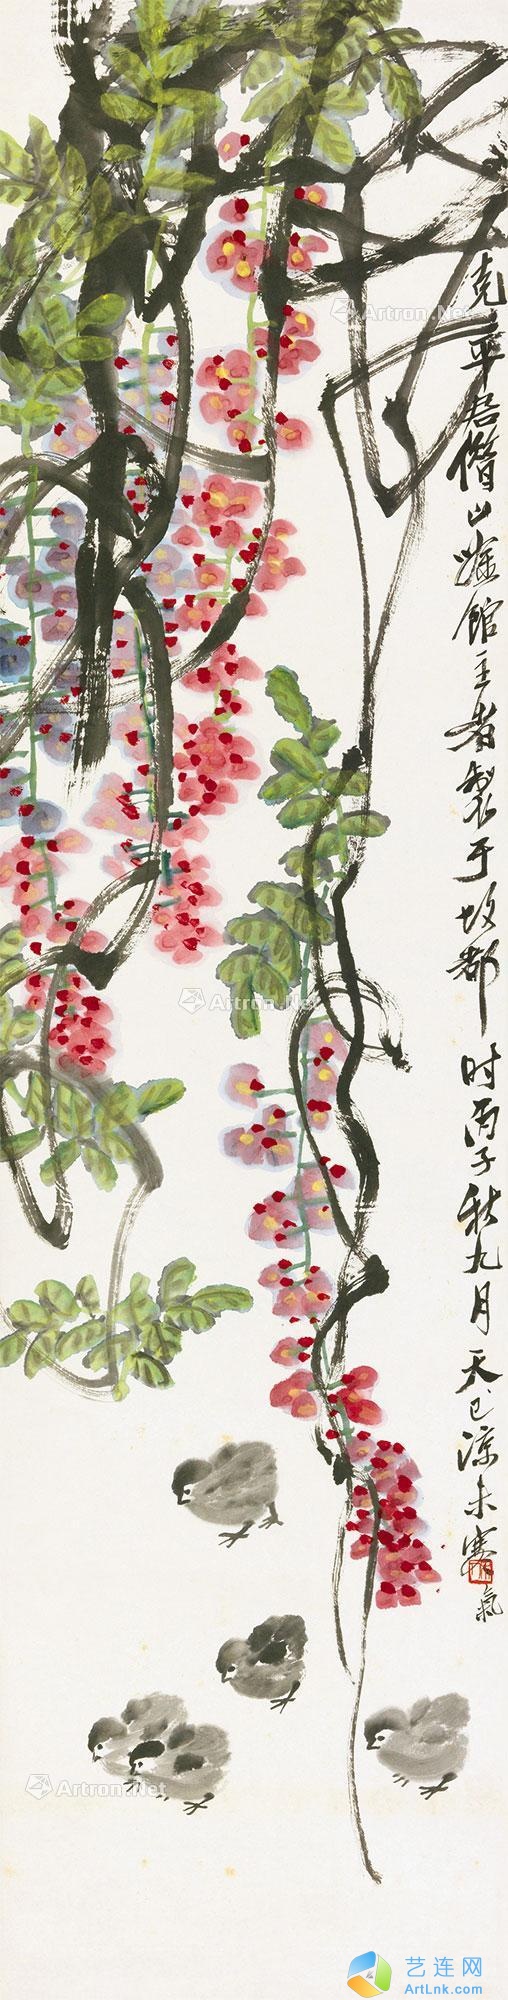 克平君借山吟馆主者制于故都时丙子秋九月天已凉未寒气
Artron.Net
Artron.Net
Artron.Net
Artron.Net
艺连网
ArtLnk.com